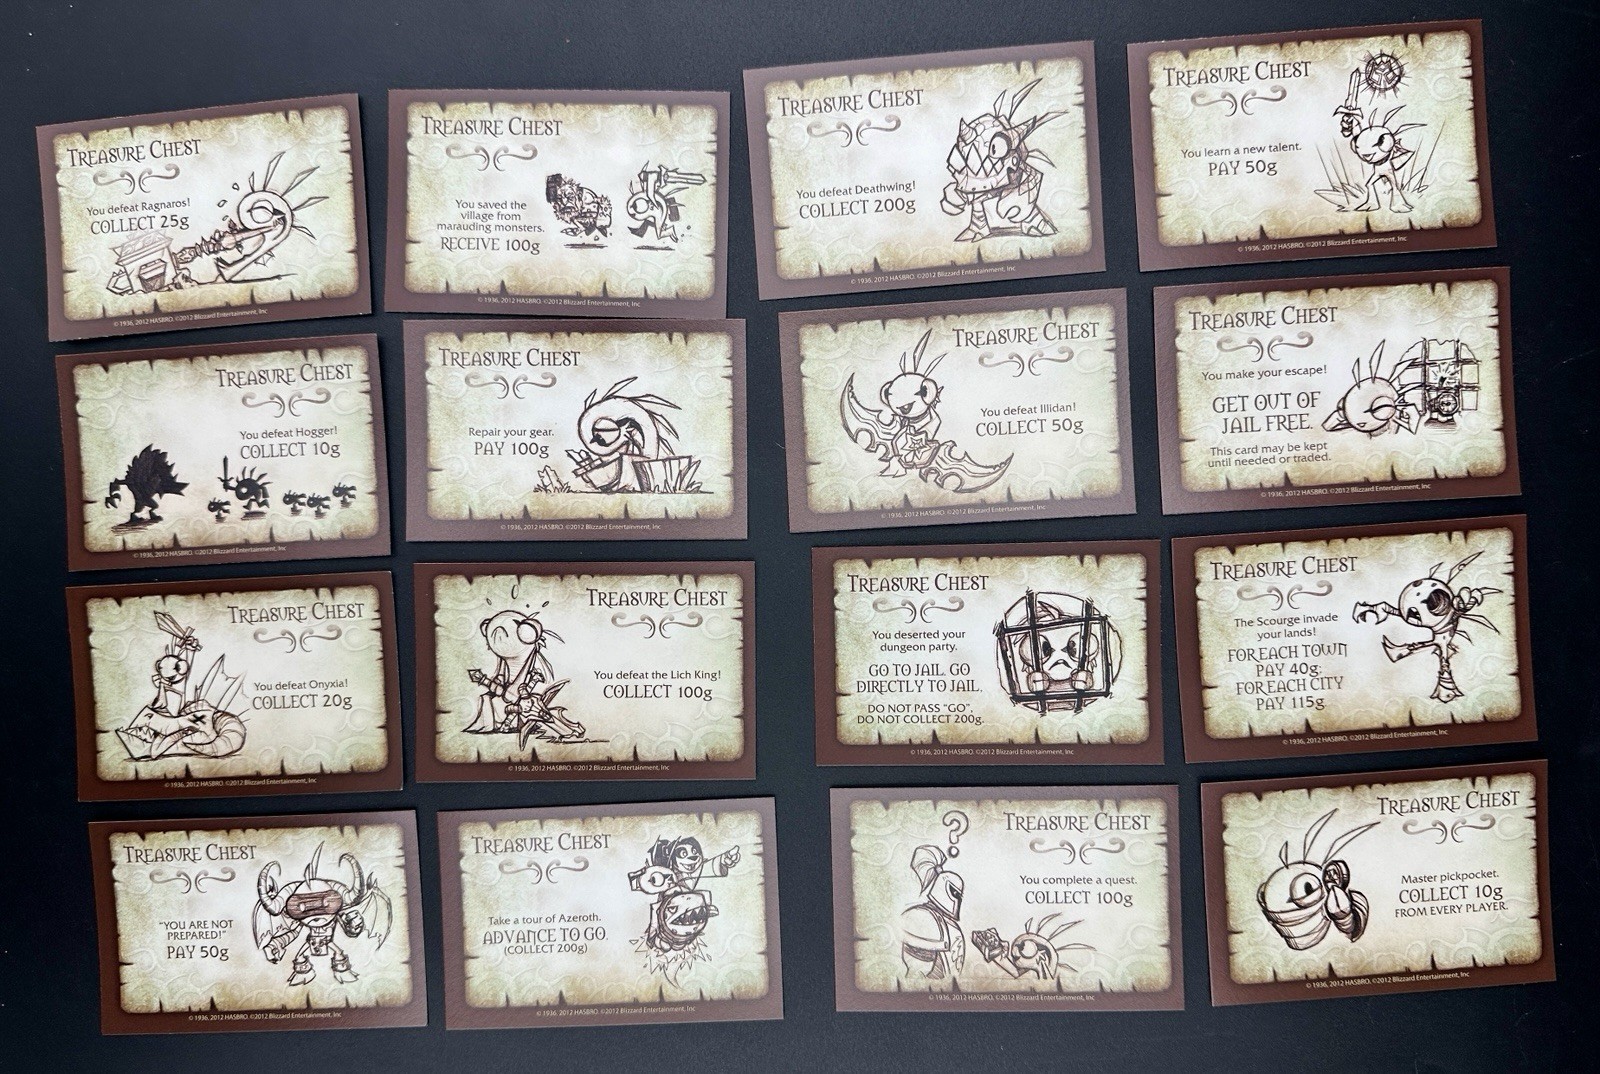 TREASURE CHEST
You defeat Ragnaros!
COLLECT 25g
© 1936, 2012 HASBRO. ©2012 Blizzard Entertainment, Inc
TREASURE CHEST
You saved the
village from
marauding monsters.
RECEIVE 100g
© 1936, 2012 HASBRO. ©2012 Blizzard Entertainment, Inc
TREASURE CHEST
You defeat Deathwing!
COLLECT 200g
© 1936, 2012 HASBRO. ©2012 Blizzard Entertainment, Inc
TREASURE CHEST
You learn a new talent.
PAY 50g
© 1936, 2012 HASBRO. ©2012 Blizzard Entertainment, Inc
TREASURE CHEST
You defeat Hogger!
COLLECT 10g
© 1936, 2012 HASBRO. ©2012 Blizzard Entertainment, Inc
TREASURE CHEST
Repair your gear.
PAY 100g
© 1936, 2012 HASBRO. ©2012 Blizzard Entertainment, Inc
TREASURE CHEST
You defeat Illidan!
COLLECT 50g
© 1936, 2012 HASBRO. ©2012 Blizzard Entertainment, Inc
TREASURE CHEST
You make your escape!
GET OUT OF
JAIL FREE.
This card may be kept
until needed or traded.
© 1936, 2012 HASBRO. ©2012 Blizzard Entertainment, Inc
TREASURE CHEST
You defeat Onyxia!
COLLECT 20g
© 1936, 2012 HASBRO. ©2012 Blizzard Entertainment, Inc
TREASURE CHEST
You defeat the Lich King!
COLLECT 100g
© 1936, 2012 HASBRO. ©2012 Blizzard Entertainment, Inc
TREASURE CHEST
You deserted your
dungeon party.
GO TO JAIL. GO
DIRECTLY TO JAIL.
DO NOT PASS "GO",
DO NOT COLLECT 200g.
© 1936, 2012 HASBRO. ©2012 Blizzard Entertainment, Inc
TREASURE CHEST
The Scourge invade
your lands!
FOR EACH TOWN
PAY 40g;
FOR EACH CITY
PAY 115g.
© 1936, 2012 HASBRO. ©2012 Blizzard Entertainment, Inc
TREASURE CHEST
"YOU ARE NOT
PREPARED!"
PAY 50g
© 1936, 2012 HASBRO. ©2012 Blizzard Entertainment, Inc
TREASURE CHEST
Take a tour of Azeroth.
ADVANCE TO GO.
(COLLECT 200g)
© 1936, 2012 HASBRO. ©2012 Blizzard Entertainment, Inc
TREASURE CHEST
?
You complete a quest.
COLLECT 100g
© 1936, 2012 HASBRO. ©2012 Blizzard Entertainment, Inc
TREASURE CHEST
Master pickpocket.
COLLECT 10g
FROM EVERY PLAYER.
© 1936, 2012 HASBRO. ©2012 Blizzard Entertainment, Inc